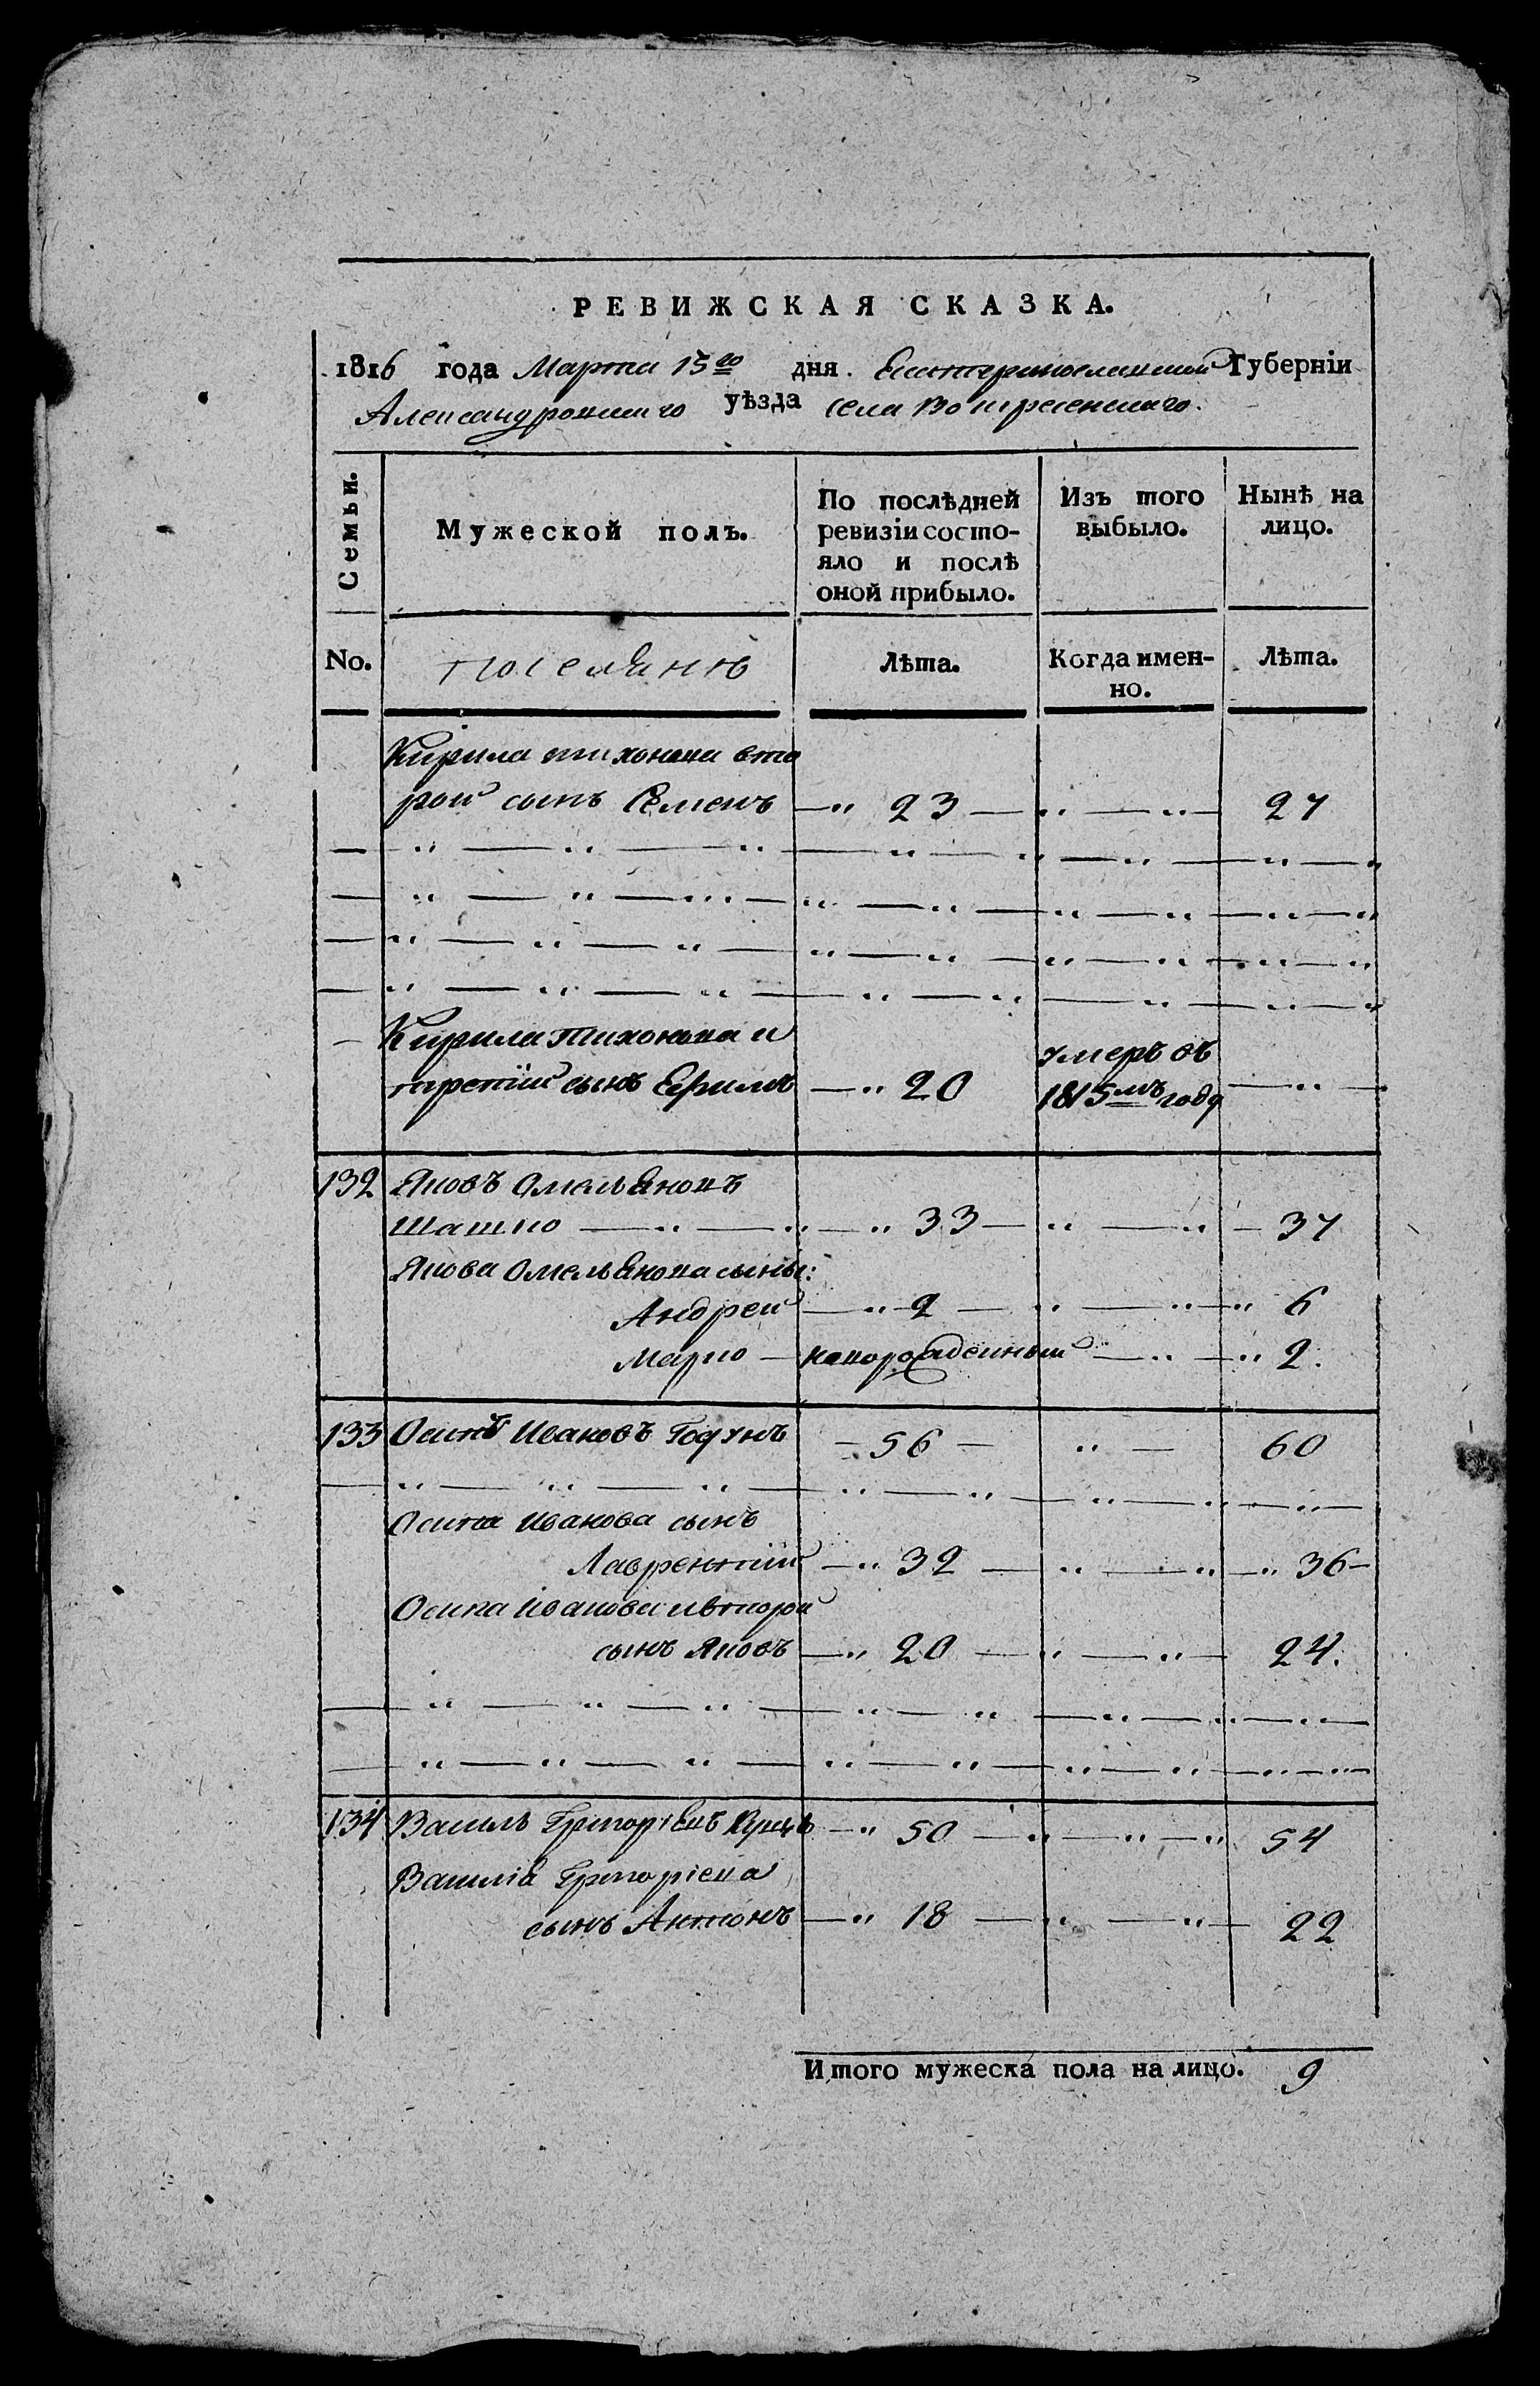 РЕВИЖСКАЯ СКАЗКА.
1816 года Марта 15го дня. Екатеринославской Губерніи
Александровского уѣзда села Вознресенскаго.
Семьи.
Мужеской полъ.
По послѣдней ревизіи состо-
яло и послѣ
оной прибыло.
Изъ того
выбыло.
Нынѣ на
лицо.
No.
поселянъ
Лѣта.
Когда имен-
но.
Лѣта.
Кирила тихонова вто
рой сынъ Семенъ — " 23 — " — " — 27
Кирила тихонова и
третій сынъ Ефимъ — " 20 умеръ въ 1815мъ году — " —
132 Яковъ Омельяновъ
Шашко — " — " — " 33 — " — " — 37
Якова Омельянова сыны:
Андрей — " 2 — " — " — " 6
Марко — новорожденный — " — " 2.
133 Осипъ Ивановъ Годунъ — 56 — " — 60
Осипа Иванова сынъ
Лаврентій — " 32 — " — " — " 36 —
Осипа Иванова и второй
сынъ Яковъ — " 20 — " — " — 24.
134 Василь Григоріевъ — " 50 — " — " — " 54
Василія Григоріева
сынъ Антонъ — " 18 — " — " — 22
Итого мужеска пола на лицо. 9